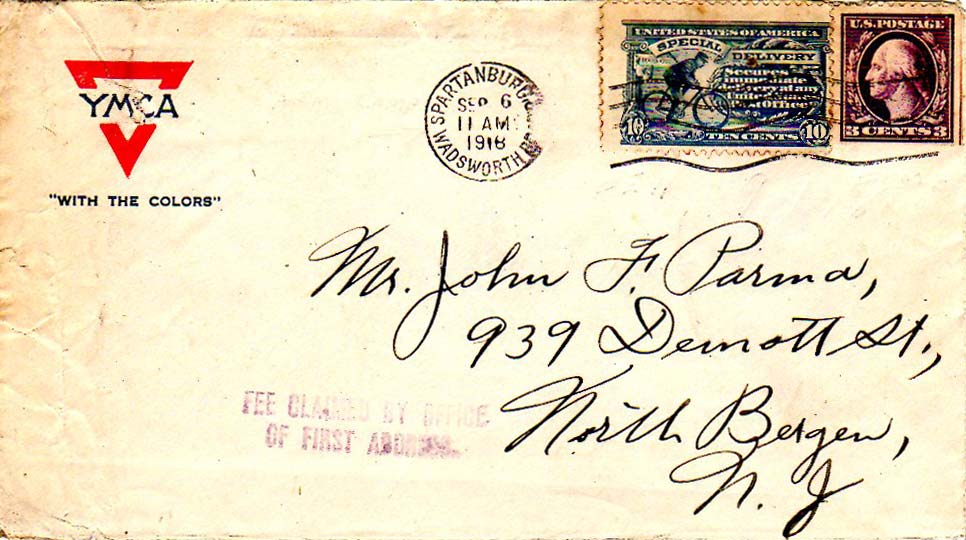 YMCA
"WITH THE COLORS"
SPARTANBURG
SEP 6
11 AM
1918
WADSWORTH BR.
UNITED STATES OF AMERICA
SPECIAL DELIVERY
Secures
immediate
delivery at any
United States
Post Office
10 TEN CENTS 10
U.S. POSTAGE
3 CENTS 3
Mr. John F. Parma,
939 Demott St.,
North Bergen,
N. J
FEE CLAIMED BY OFFICE
OF FIRST ADDRESS.